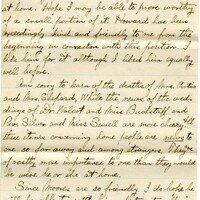 at home. Hope I may be able to prove worthy
of a small portion of it. Howard has been
exceedingly kind and friendly to me from the
beginning in connection with this position. I
like him for it although I liked him equally
well before.
Am sorry to learn of the deaths of Mrs.
and Mrs. Shepard, while the news of the wed-
dings of Dr. and Miss and
Rev. and Miss are more cheery. All
these items concerning home people are news to
one so far away and among strangers. They
of vastly more importance to one than they would
be were he or she at home.
Since are so friendly I do hope he